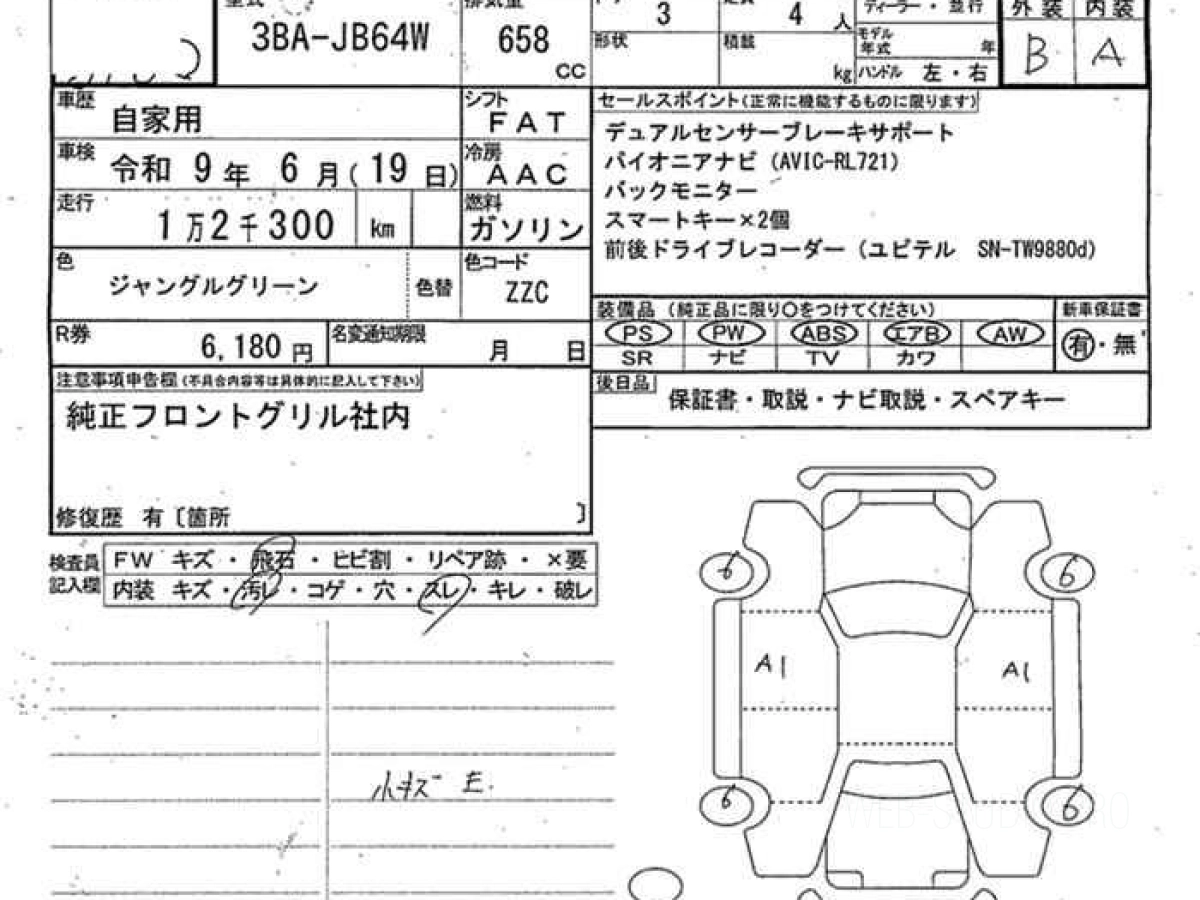 型式 排気量
3 4 人 ディーラー・並行 外装 内装
3BA-JB64W 658 CC 形状 積載 kg モデル年式 年 B A
ハンドル 左・右
車歴 自家用 シフト FAT
セールスポイント(正常に機能するものに限ります)
デュアルセンサーブレーキサポート
車検 令和 9年 6月(19日) 冷房 AAC
パイオニアナビ (AVIC-RL721)
バックモニター
走行 1万2千300 km 燃料 ガソリン
スマートキー×2個
前後ドライブレコーダー (ユピテル SN-TW9880d)
色 ジャングルグリーン 色替 色コード ZZC
装備品 (純正品に限り○をつけてください) 新車保証書
PS PW ABS エアB AW 有・無
SR ナビ TV カワ
R券 6,180円 名変通知期限 月 日
注意事項申告欄(不具合内容等は具体的に記入して下さい)
後日品 保証書・取説・ナビ取説・スペアキー
純正フロントグリル社内
修復歴 有〔箇所 〕
検査員記入欄
FW キズ・飛石・ヒビ割・リペア跡・×要
内装 キズ・汚レ・コゲ・穴・スレ・キレ・破レ
6 6
A1 A1
小キズ E.
6 6